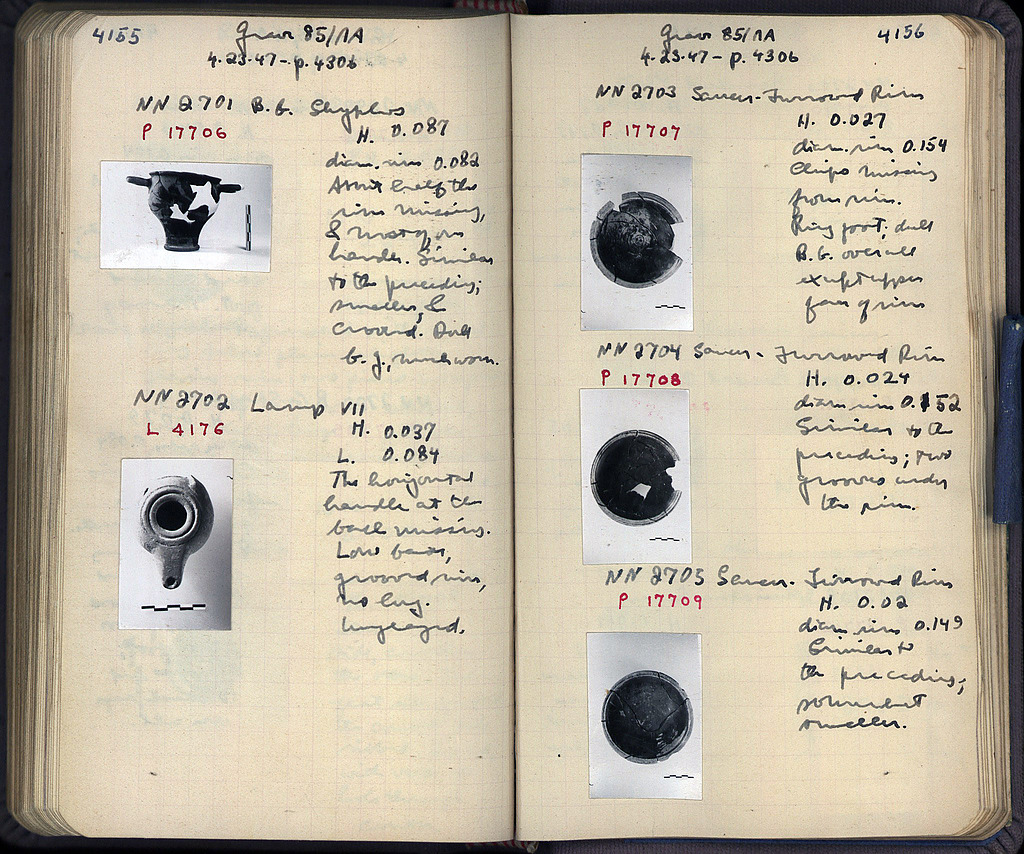 4155
Grave 85/ΠΑ
4-23-47 - p. 4306
NN 2701 B.G. Skyphos
P 17706
H. 0.087
diam. rim 0.082
About half the
rim missing,
& most of one
handle. Similar
to the preceding;
smaller, &
Dull
b.g., much worn.
NN 2702 Lamp VII
L 4176
H. 0.037
L. 0.084
The horizontal
handle at the
back missing.
Low base,
grooved rim,
no lug.
Unglazed.
4156
Grave 85/ΠΑ
4-23-47 - p. 4306
NN 2703 Saucer - Furrowed Rim
P 17707
H. 0.027
diam. rim 0.154
Chips missing
from rim.
Ring foot; dull
B.G. overall
except upper
face of rim
NN 2704 Saucer - Furrowed Rim
P 17708
H. 0.024
diam. rim 0.152
Similar to the
preceding; two
grooves under
the rim.
NN 2705 Saucer - Furrowed Rim
P 17709
H. 0.02
diam. rim 0.149
Similar to
the preceding;
somewhat
smaller.